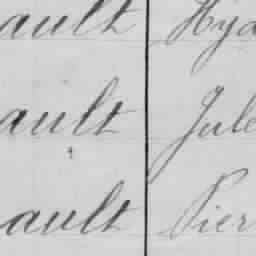 ault Hya
ault Jule
ault Pier